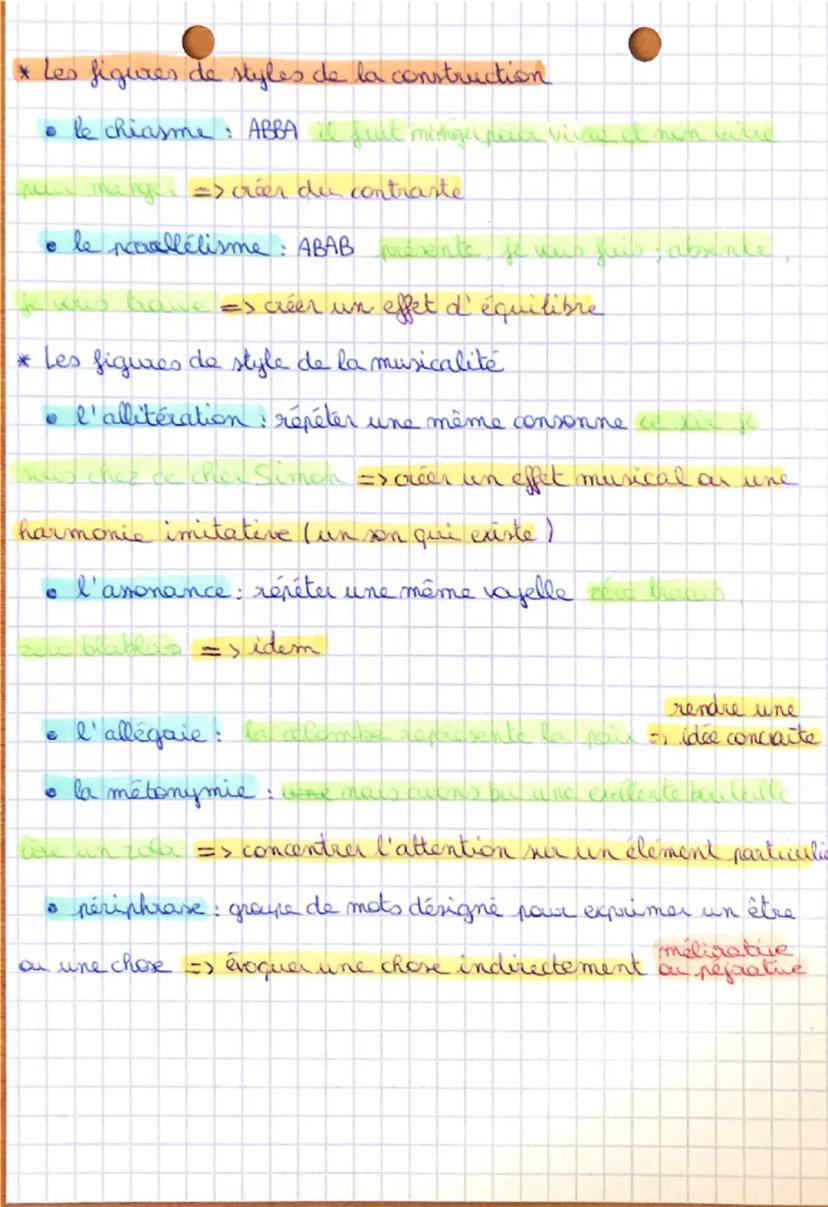 * Les figures de styles de la construction
• le chiasme : ABBA il faut manger pour vivre et non vivre
pour manger => créer du contraste
• le parallélisme : ABAB présente, je vous fuis ; absente,
je vous trouve => créer un effet d'équilibre
* Les figures de style de la musicalité
• l'allitération : répéter une même consonne ce soir je
suis chez ce cher Simon => créer un effet musical ou une
harmonie imitative (un son qui existe)
• l'assonance : répéter une même voyelle zéro tracas
zéro blablas => idem
rendre une
• l'allégorie : la colombe représente la paix => idée concrète
• la métonymie : nous avons bu une excellente bouteille
lire un zola => concentrer l'attention sur un élément particulie
• périphrase : groupe de mots désigné pour exprimer un être
ou une chose => évoquer une chose indirectement méliorative
ou péjorative